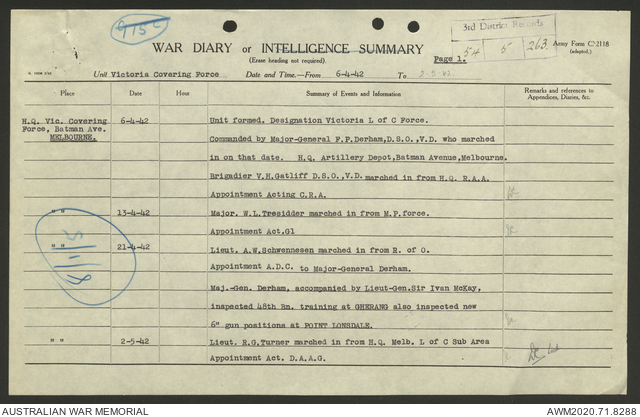 915c
3rd District Records
54 5 263
WAR DIARY or INTELLIGENCE SUMMARY
(Erase heading not required).
Page 1.
Army Form C.2118
(adapted.)
Unit Victoria Covering Force Date and Time.—From 6-4-42 To 2-5-42
Place Date Hour Summary of Events and Information Remarks and references to
Appendices, Diaries, &c.
H.Q. Vic. Covering 6-4-42 Unit formed. Designation Victoria L of C Force.
Force, Batman Ave. Commanded by Major-General F.P.Derham,D.S.O.,V.D. who marched
MELBOURNE. in on that date. H.Q. Artillery Depot,Batman Avenue,Melbourne.
Brigadier V.H.Gatliff D.S.O.,V.D. marched in from H.Q. R.A.A.
Appointment Acting C.R.A.
" " 13-4-42 Major. W.L.Tresidder marched in from M.P.force.
Appointment Act.G1
" " 21-4-42 Lieut. A.W.Schwennesen marched in from R. of O.
Appointment A.D.C. to Major-General Derham.
Maj.-Gen. Derham, accompanied by Lieut-Gen.Sir Ivan McKay,
inspected 48th Bn. training at GHERANG also inspected new
6" gun positions at POINT LONSDALE.
" " 2-5-42 Lieut. R.G.Turner marched in from H.Q. Melb. L of C Sub Area
Appointment Act. D.A.A.G.
5/1/18
AUSTRALIAN WAR MEMORIAL AWM2020.71.8288